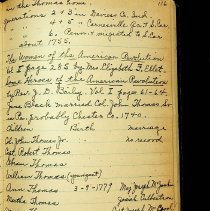 in the Thomas home. 116
generations 2 + 3 in Davies Co. Ind.
" 4 + 5 - Cannesville for S. Car
" 6. Penn + migrated to S. Car
about 1755.
The Women of the American Revolution
Vol I page 285 by Mrs. Elizabeth F. Ellet.
Some Heroes of the American Revolution
by Rev. J. D. Bailey. Vol I pages 61-64.
Jane Black married Col. John Thomas, Sr.
in Pa. probably Chester Co. 1740.
Children Birth marriage
Col. John Thomas Jr. no record
Capt. Robert Thomas
Abram Thomas
William Thomas (youngest)
Ann Thomas 3-9-1779 Maj Joseph McJunkin
Martha Thomas Josiah Culbertson